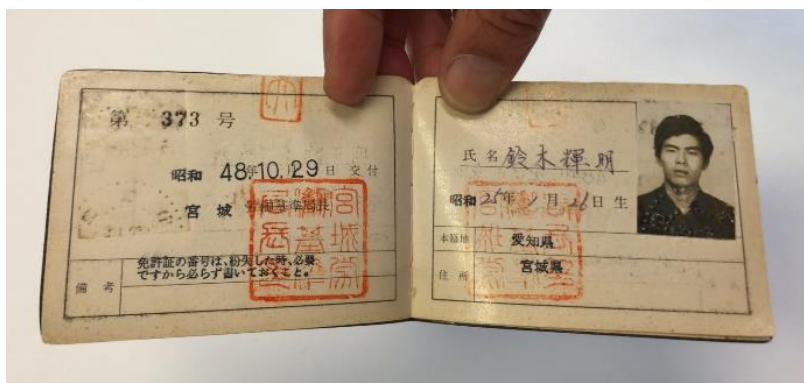 第 373 号
昭和 48年10月29日 交付
宮城 労働基準局長
備考
免許証の番号は、紛失した時、必要
ですから必らず書いておくこと。
氏名 鈴木輝明
昭和 25年 月26日生
本籍地 愛知県
住所 宮城県